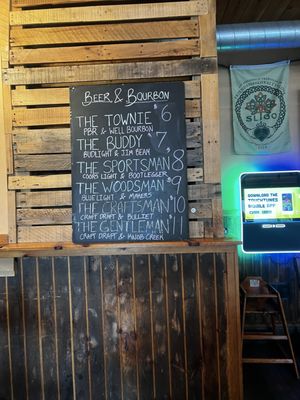 BEER & BOURBON
THE TOWNIE $6
PBR & WELL BOURBON
THE BUDDY $7
BUDLIGHT & JIM BEAM
THE SPORTSMAN $8
COORS LIGHT & BOOTLEGGER
THE WOODSMAN $9
BLUELIGHT & MAKERS
THE CRAFTSMAN $10
CRAFT DRAFT & BULLIET
THE GENTLEMAN $11
CRAFT DRAFT & KNOB CREEK
SLIGO
DOWNLOAD THE
TOUCHTUNES
MOBILE APP